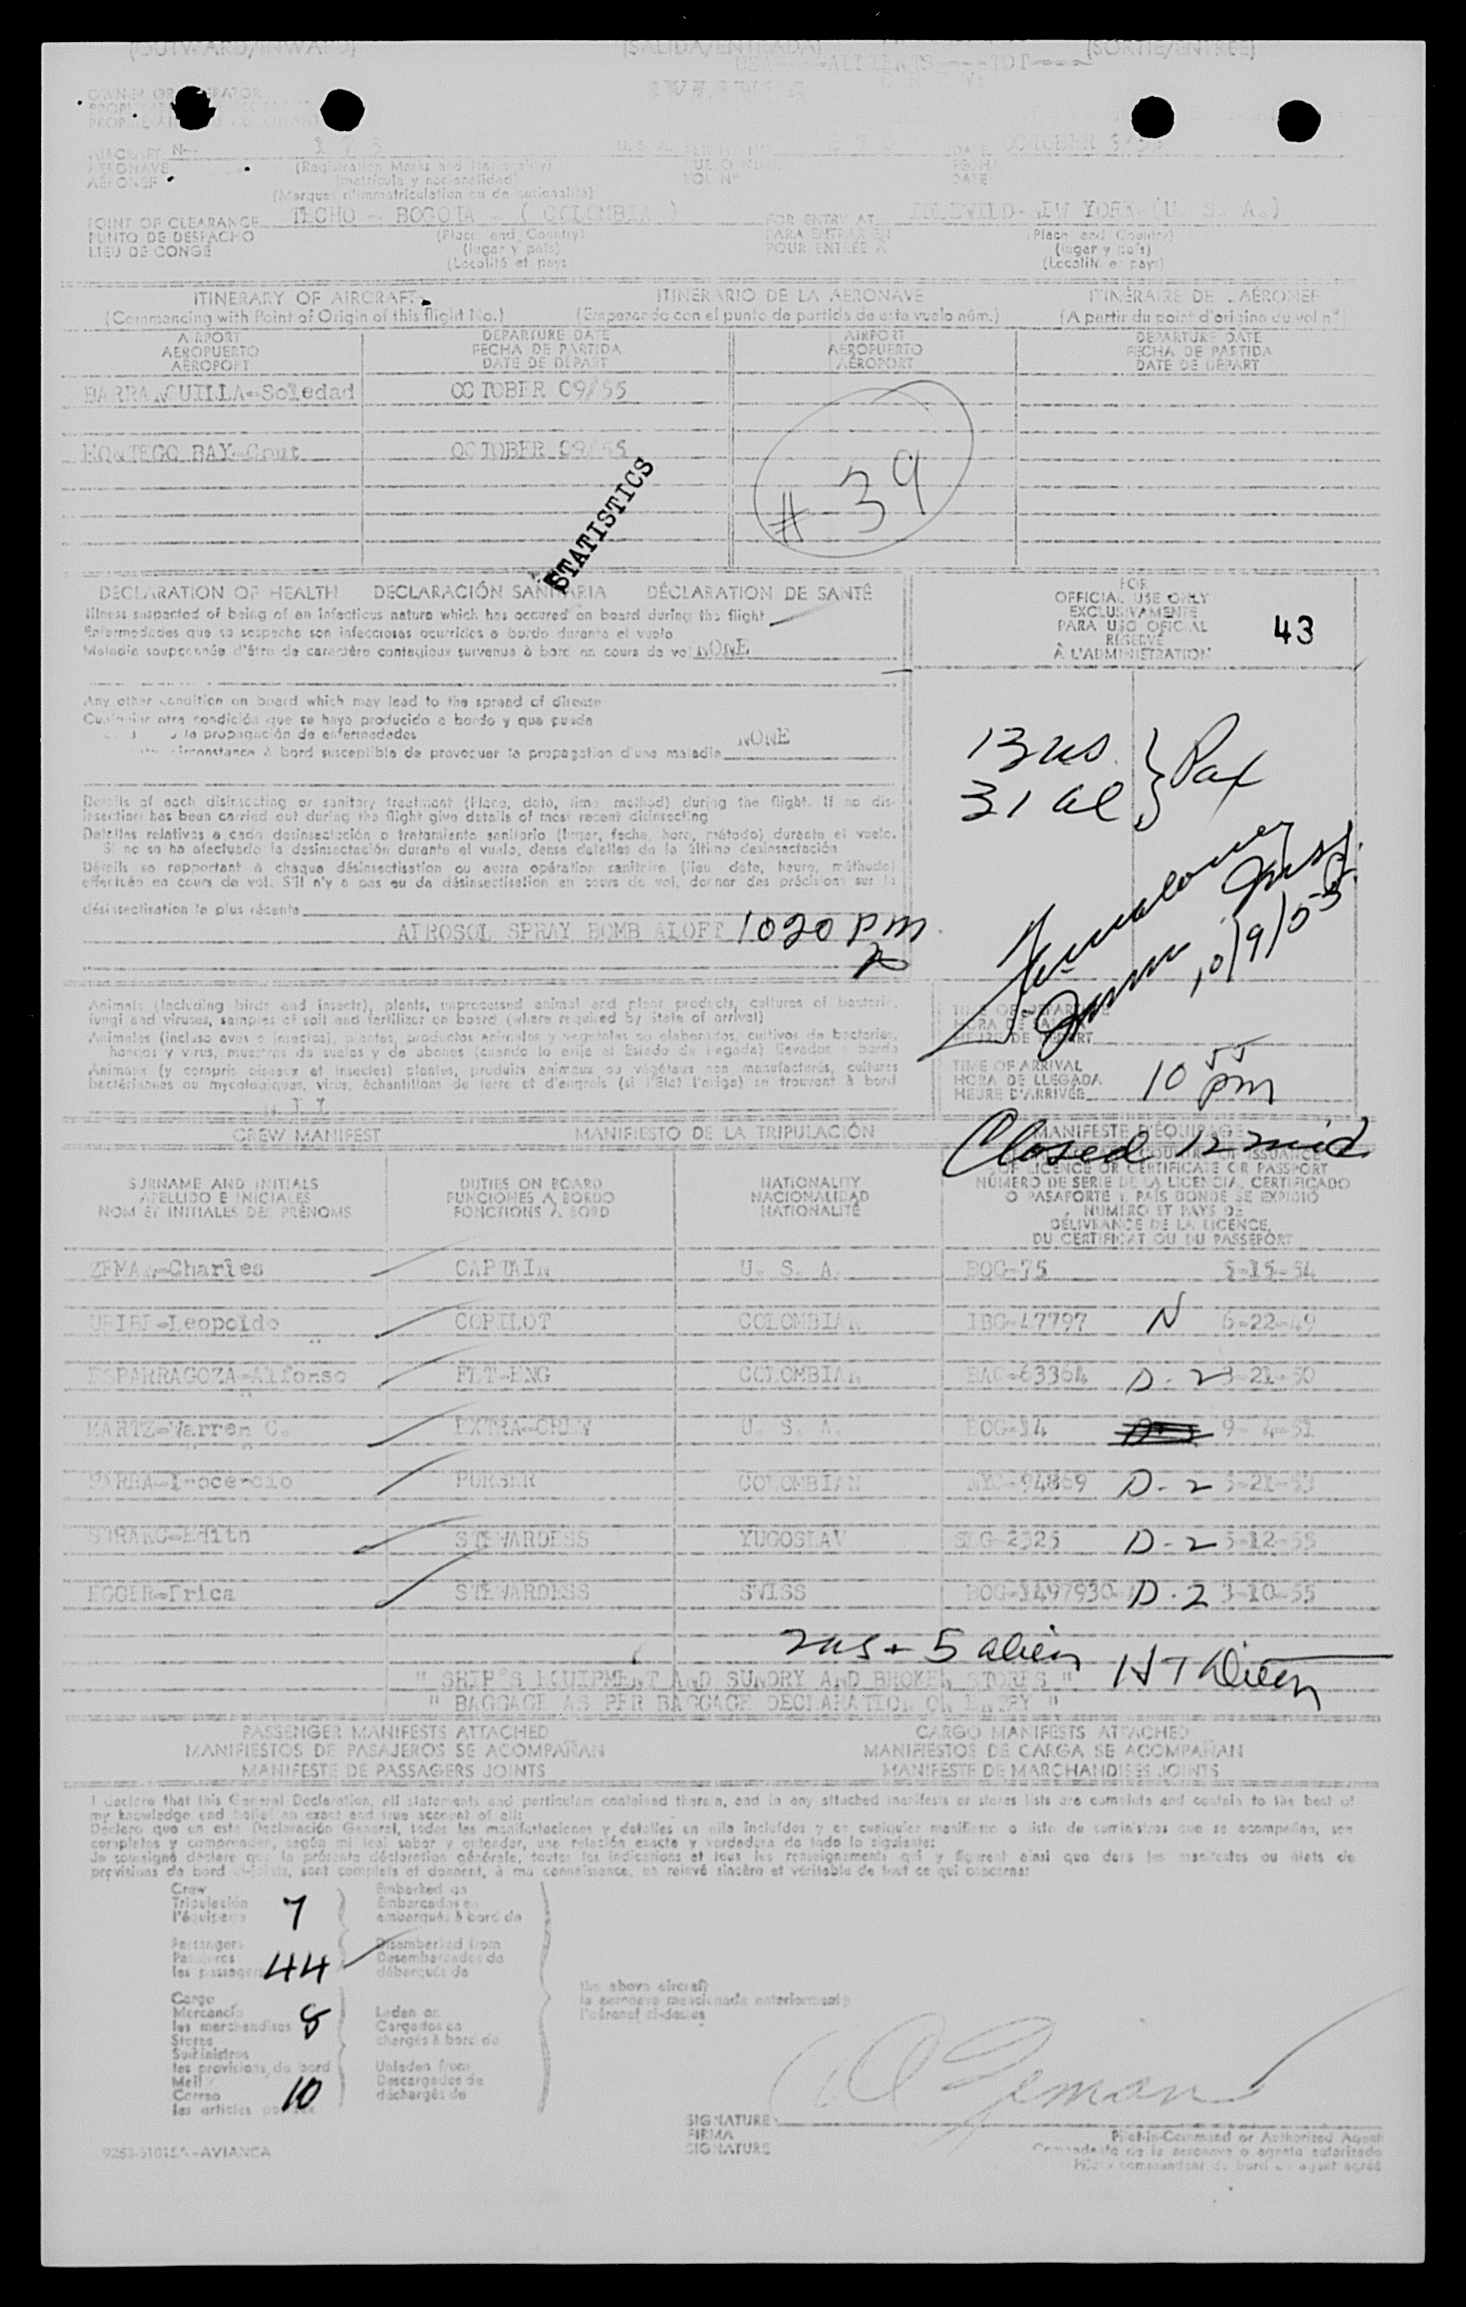 (OUTWARD/INWARD) (SALIDA/ENTRADA) (SORTIE/ENTRÉE)
AIRCRAFT N- U.S.A. DATE OCTOBER
AERONAVE (Registration Marks and Nationality) FECHA
AÉRONEF (matrícula y nacionalidad) VOL Nº DATE
(Marques d'immatriculation ou de nationalité)
POINT OF CLEARANCE TECHO - BOGOTA - ( COLOMBIA ) FOR ENTRY AT IDLEWILD-NEW YORK-(U. S. A.)
PUNTO DE DESPACHO (Place and Country) PARA ENTRAR EN (Place and Country)
LIEU DE CONGÉ (lugar y país) POUR ENTRÉE À (lugar y país)
(Localité et pays (Localité et pays)
ITINERARY OF AIRCRAFT ITINERARIO DE LA AERONAVE ITINÉRAIRE DE L'AÉRONEF
(Commencing with Point of Origin of this flight No.) (Empezando con el punto de partida de este vuelo núm.) (A partir du point d'origine du vol nº)
AIRPORT DEPARTURE DATE AIRPORT DEPARTURE DATE
AEROPUERTO FECHA DE PARTIDA AEROPUERTO FECHA DE PARTIDA
AÉROPORT DATE DE DÉPART AÉROPORT DATE DE DÉPART
BARRANQUILLA-Soledad OCTOBER 09/55
MONTEGO BAY-Cnut OCTOBER 09/55
# 39
STATISTICS
DECLARATION OF HEALTH DECLARACIÓN SANITARIA DÉCLARATION DE SANTÉ
Illness suspected of being of an infectious nature which has occured on board during the flight
Enfermedades que se sospecha son infecciosas ocurridas a bordo durante el vuelo
Maladie soupçonnée d'être de caractère contagieux survenue à bord en cours de vol NONE
FOR
OFFICIAL USE ONLY
EXCLUSIVAMENTE
PARA USO OFICIAL
RÉSERVÉ
À L'ADMINISTRATION
43
Any other condition on board which may lead to the spread of disease
Cualquier otra condición que se haya producido a bordo y que pueda
la propagación de enfermedades
circonstance à bord susceptible de provoquer la propagation d'une maladie NONE
13 us
31 al } Pax
Details of each disinsecting or sanitary treatment (Place, date, time, method) during the flight. If no dis-
insecting has been carried out during the flight give details of most recent disinsecting
Detalles relativos a cada desinsectación o tratamiento sanitario (lugar, fecha, hora, método) durante el vuelo.
Si no se ha efectuado la desinsectación durante el vuelo, dense detalles de la última desinsectación
Détails se rapportant à chaque désinsectisation ou autre opération sanitaire (lieu, date, heure, méthode)
effectuée en cours de vol. S'il n'y a pas eu de désinsectisation en cours de vol, donner des précisions sur la
désinsectisation la plus récente
AIROSOL SPRAY BOMB ALOFT 1020 pm
10/9/55
Animals (including birds and insects), plants, unprocessed animal and plant products, cultures of bacteria,
fungi and viruses, samples of soil and fertilizer on board (where required by State of arrival)
Animales (incluso aves e insectos), plantas, productos animales y vegetales no elaborados, cultivos de bacterias,
hongos y virus, muestras de suelos y de abonos (cuando lo exija el Estado de llegada) llevados a bordo
Animaux (y compris oiseaux et insectes) plantes, produits animaux ou végétaux non manufacturés, cultures
bactériennes ou mycologiques, virus, échantillons de terre et d'engrais (si l'État l'exige) se trouvant à bord
TIME OF DEPARTURE
HORA DE SALIDA
HEURE DE DÉPART
TIME OF ARRIVAL
HORA DE LLEGADA
HEURE D'ARRIVÉE 10 55 pm
Closed 12 mid
CREW MANIFEST MANIFIESTO DE LA TRIPULACIÓN MANIFESTE D'ÉQUIPAGE
OF LICENCE OR CERTIFICATE OR PASSPORT
SURNAME AND INITIALS DUTIES ON BOARD NATIONALITY NÚMERO DE SERIE DE LA LICENCIA, CERTIFICADO
APELLIDO E INICIALES FUNCIONES A BORDO NACIONALIDAD O PASAPORTE Y PAÍS DONDE SE EXPIDIÓ
NOM ET INITIALES DES PRÉNOMS FONCTIONS À BORD NATIONALITÉ NUMÉRO ET PAYS DE
DÉLIVRANCE DE LA LICENCE,
DU CERTIFICAT OU DU PASSEPORT
ZEMAN-Charles CAPTAIN U. S. A. BOG-75 5-15-54
URIBE-Leopoldo COPILOT COLOMBIAN IBG-47797 N 6-22-49
ESPARRAGOZA-Alfonso FLT-ENG COLOMBIAN BAQ-63364 D-2 -21-50
MARTZ-Warren C. EXTRA-CREW U. S. A. BOG-14
PARRA-Inocencio PURSER COLOMBIAN NYC-94869 D-2 5-21-53
-Edith STEWARDESS YUGOSLAV 2325 D-2 5-12-55
EGGER-Erica STEWARDESS SWISS BOG-1497930 D-2 3-10-55
2us + 5 alien
" SHIP'S EQUIPMENT AND SUNDRY AND BROKEN STORES "
" BAGGAGE AS PER BAGGAGE DECLARATION ON ENTRY "
PASSENGER MANIFESTS ATTACHED CARGO MANIFESTS ATTACHED
MANIFIESTOS DE PASAJEROS SE ACOMPAÑAN MANIFIESTOS DE CARGA SE ACOMPAÑAN
MANIFESTE DE PASSAGERS JOINTS MANIFESTE DE MARCHANDISES JOINTS
I declare that this General Declaration, all statements and particulars contained therein, and in any attached manifests or stores lists are complete and contain to the best of
my knowledge and belief an exact and true account of all:
Declaro que en esta Declaración General, todas las manifestaciones y detalles en ella incluídos y en cualquier manifiesto o lista de suministros que se acompañan, son
completos y comprenden, según mi leal saber y entender, una relación exacta y verdadera de todo lo siguiente:
Je soussigné déclare que la présente déclaration générale, toutes les indications et tous les renseignements qui y figurent ainsi que dans les manifestes ou états de
provisions de bord ci-joints, sont complets et donnent, à ma connaissance, un relevé sincère et véritable de tout ce qui concerne:
Crew Embarked on
Tripulación 7 Embarcados en
l'équipage embarqués à bord de
Passengers Disembarked from
Pasajeros 44 Desembarcados de
les passagers débarqués de
Cargo
Mercancía 8 Laden on
les marchandises Cargados en
Stores chargés à bord de
Suministros
les provisions de bord Unladen from
Mail Descargados de
Correo 10 déchargés de
les articles postaux
the above aircraft
la aeronave mencionada anteriormente
l'aéronef ci-dessus
SIGNATURE Pilot-in-Command or Authorized Agent
FIRMA Comandante de la aeronave o agente autorizado
SIGNATURE Pilote commandant de bord ou agent agréé
9253-51015A-AVIANCA